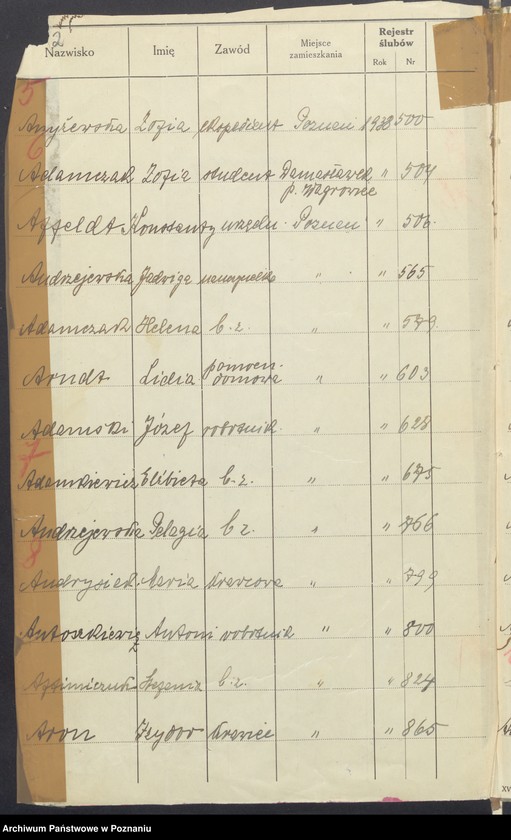 Nazwisko Imię Zawód Miejsce zamieszkania Rejestr ślubów
Rok Nr
5
Anyżewska Zofia ekspedient Poznań 1938 500
6
Adamczak Zofia student Damasławek " 504
p. Wągrowiec
Affeldt Konstanty urzędn. Poznań " 506.
Andrzejewska Jadwiga " " 565
Adamczak Helena b.z. " " 579
Arndt Lidia pomocn. domowa " " 603
Adamski Józef robotnik " " 628
7
Adamkiewicz Elżbieta b.z. " " 675
Andrzejewska Pelagia b.z. " " 766
8
Andrysiak Maria krawcowa " " 799
Antoszkiewicz Antoni robotnik " " 800
b.z. " " 824
Aron Izydor krawiec " " 865
Archiwum Państwowe w Poznaniu